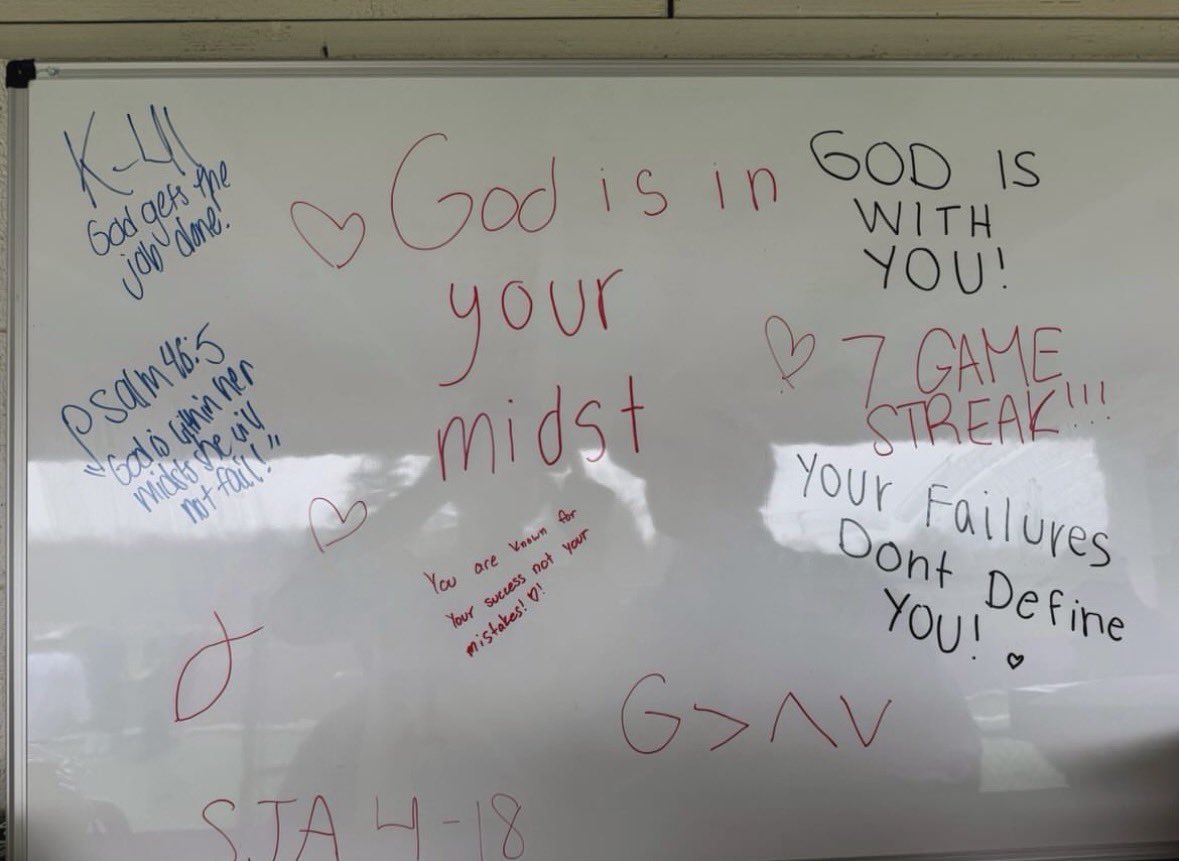 K-41
God gets the
job done!
Psalm 46:5
"God is within her
midst she will
not fail!"
God is in
your
midst
You are known for
your success not your
mistakes! ♡!
GOD IS
WITH
YOU!
7 GAME
STREAK!!!
Your Failures
Dont Define
You!
G>ΛV
SJA 4-18